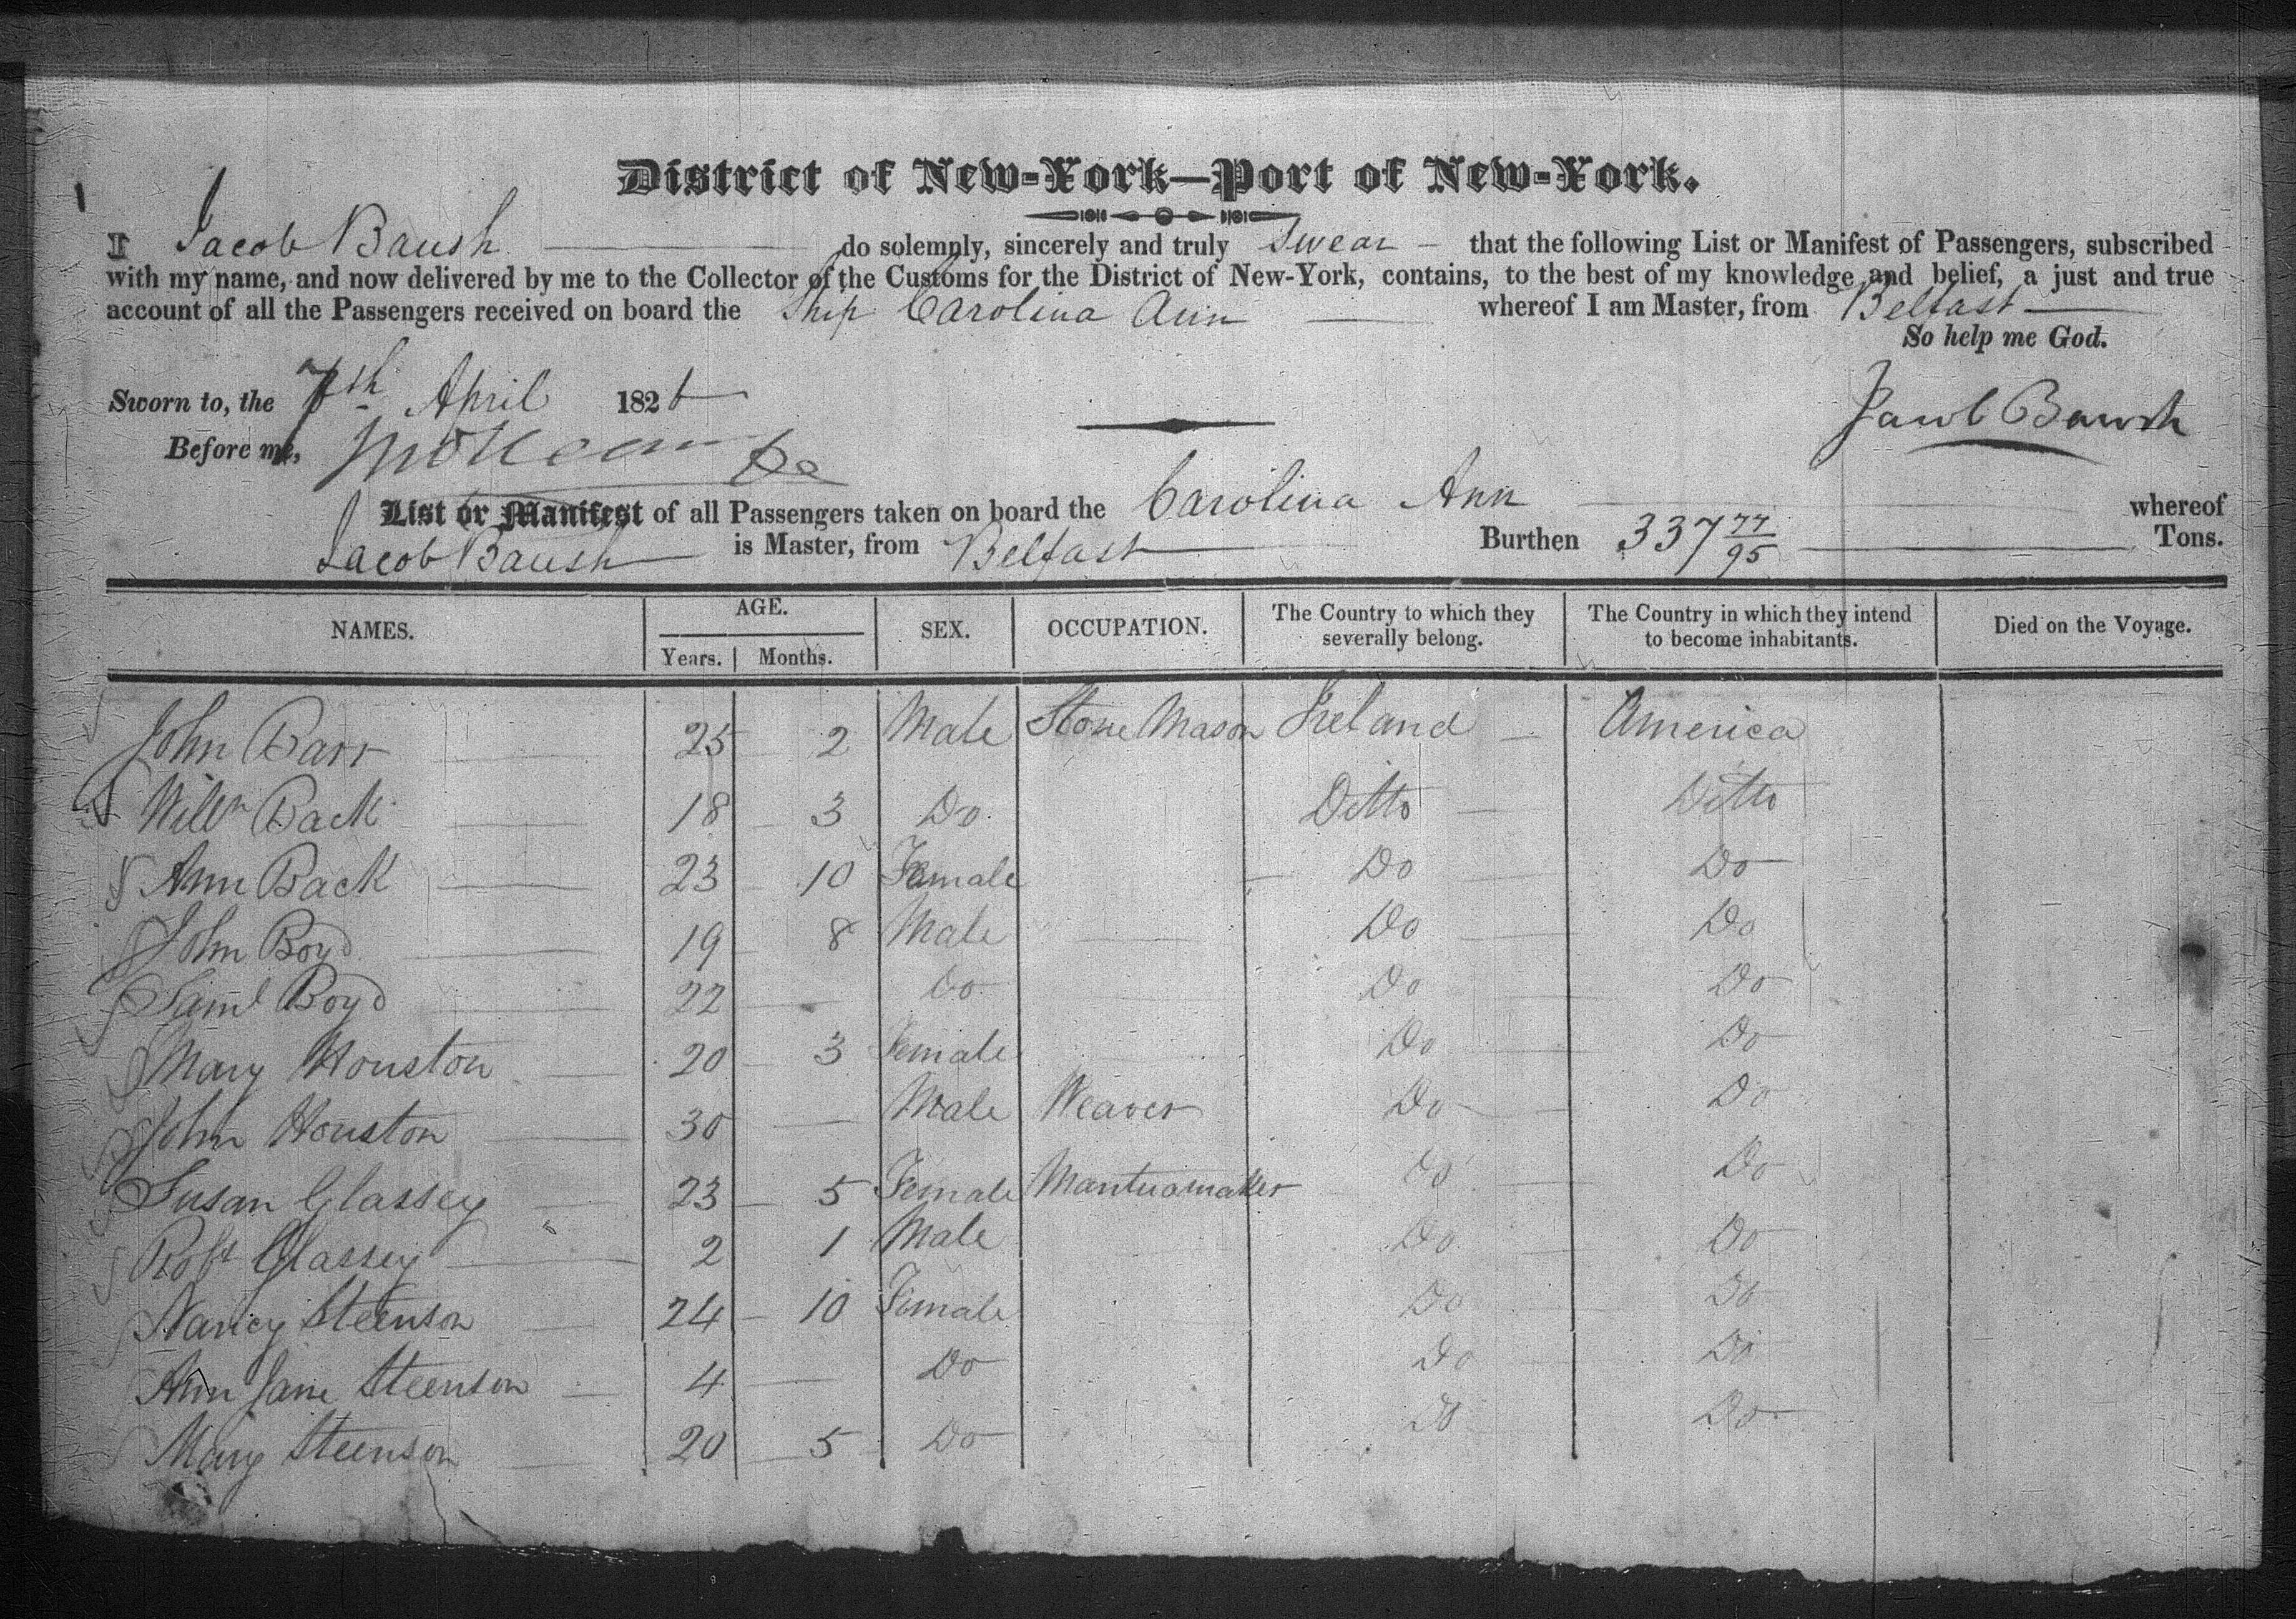 District of New-York—Port of New-York.
I Jacob Baush do solemnly, sincerely and truly Swear that the following List or Manifest of Passengers, subscribed
with my name, and now delivered by me to the Collector of the Customs for the District of New-York, contains, to the best of my knowledge and belief, a just and true
account of all the Passengers received on board the Ship Carolina Ann whereof I am Master, from Belfast
So help me God.
Sworn to, the 7th April 1826
Jacob Baush
Before me,
List or Manifest of all Passengers taken on board the Carolina Ann whereof
Jacob Baush is Master, from Belfast Burthen 337 77/95 Tons.
NAMES. AGE. Years. Months. SEX. OCCUPATION. The Country to which they severally belong. The Country in which they intend to become inhabitants. Died on the Voyage.
John Barr 25 2 Male Stone Mason Ireland America
Willm Back 18 3 Do Ditto Ditto
Ann Back 23 10 Female Do Do
John Boyd 19 8 Male Do Do
Saml Boyd 22 Do Do Do
Mary Houston 20 3 Female Do Do
John Houston 30 Male Weaver Do Do
Susan Glassey 23 5 Female Mantuamaker Do Do
Robt Glassey 2 1 Male Do Do
Nancy Steenson 24 10 Female Do Do
Ann Jane Steenson 4 Do Do Do
Mary Steenson 20 5 Do Do Do